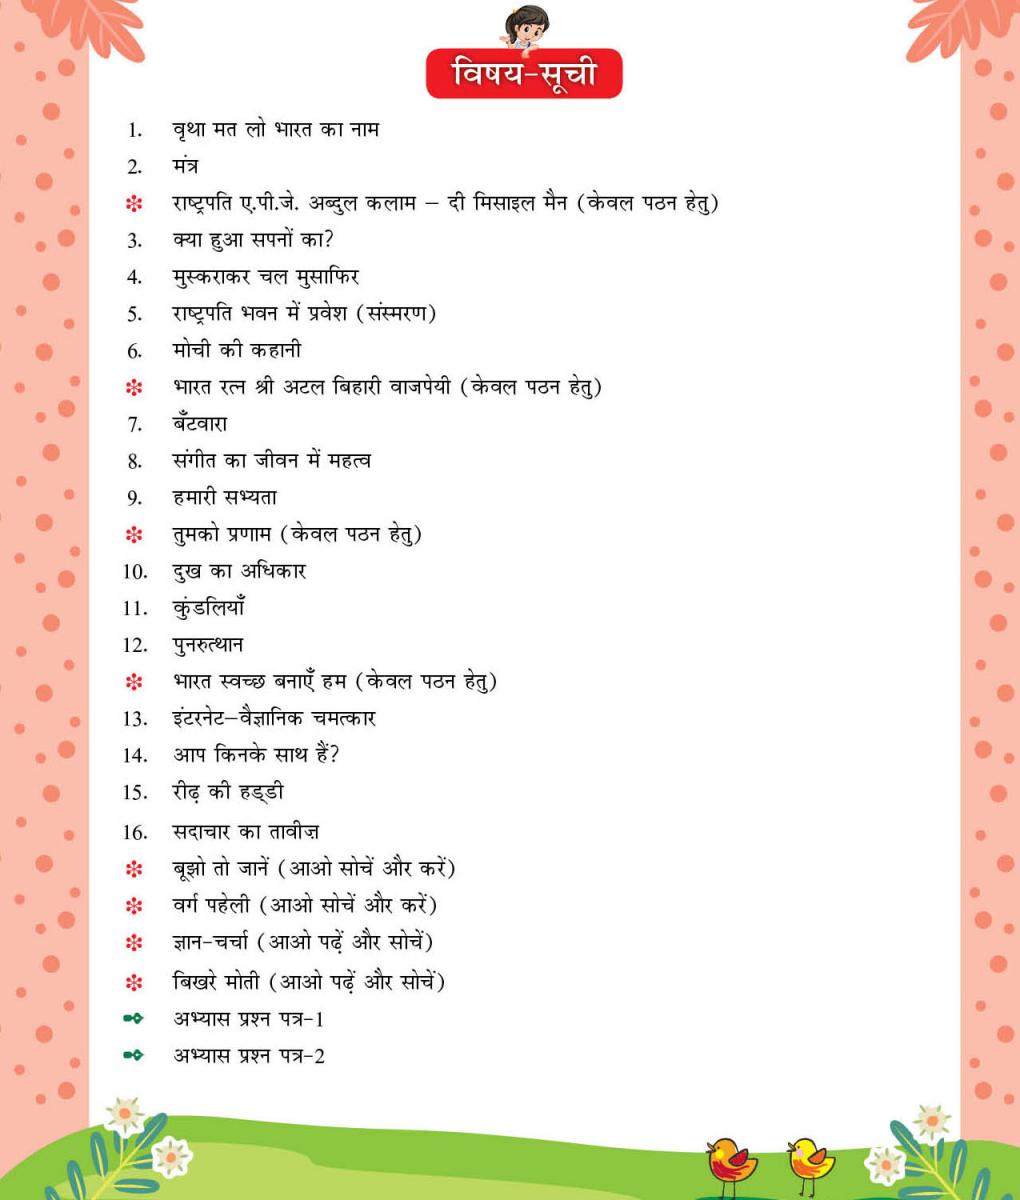 विषय-सूची
1. वृथा मत लो भारत का नाम
2. मंत्र
✽ राष्ट्रपति ए.पी.जे. अब्दुल कलाम – दी मिसाइल मैन (केवल पठन हेतु)
3. क्या हुआ सपनों का?
4. मुस्कराकर चल मुसाफिर
5. राष्ट्रपति भवन में प्रवेश (संस्मरण)
6. मोची की कहानी
✽ भारत रत्न श्री अटल बिहारी वाजपेयी (केवल पठन हेतु)
7. बँटवारा
8. संगीत का जीवन में महत्व
9. हमारी सभ्यता
✽ तुमको प्रणाम (केवल पठन हेतु)
10. दुख का अधिकार
11. कुंडलियाँ
12. पुनरुत्थान
✽ भारत स्वच्छ बनाएँ हम (केवल पठन हेतु)
13. इंटरनेट–वैज्ञानिक चमत्कार
14. आप किनके साथ हैं?
15. रीढ़ की हड्‌डी
16. सदाचार का तावीज़
✽ बूझो तो जानें (आओ सोचें और करें)
✽ वर्ग पहेली (आओ सोचें और करें)
✽ ज्ञान-चर्चा (आओ पढ़ें और सोचें)
✽ बिखरे मोती (आओ पढ़ें और सोचें)
अभ्यास प्रश्न पत्र-1
अभ्यास प्रश्न पत्र-2